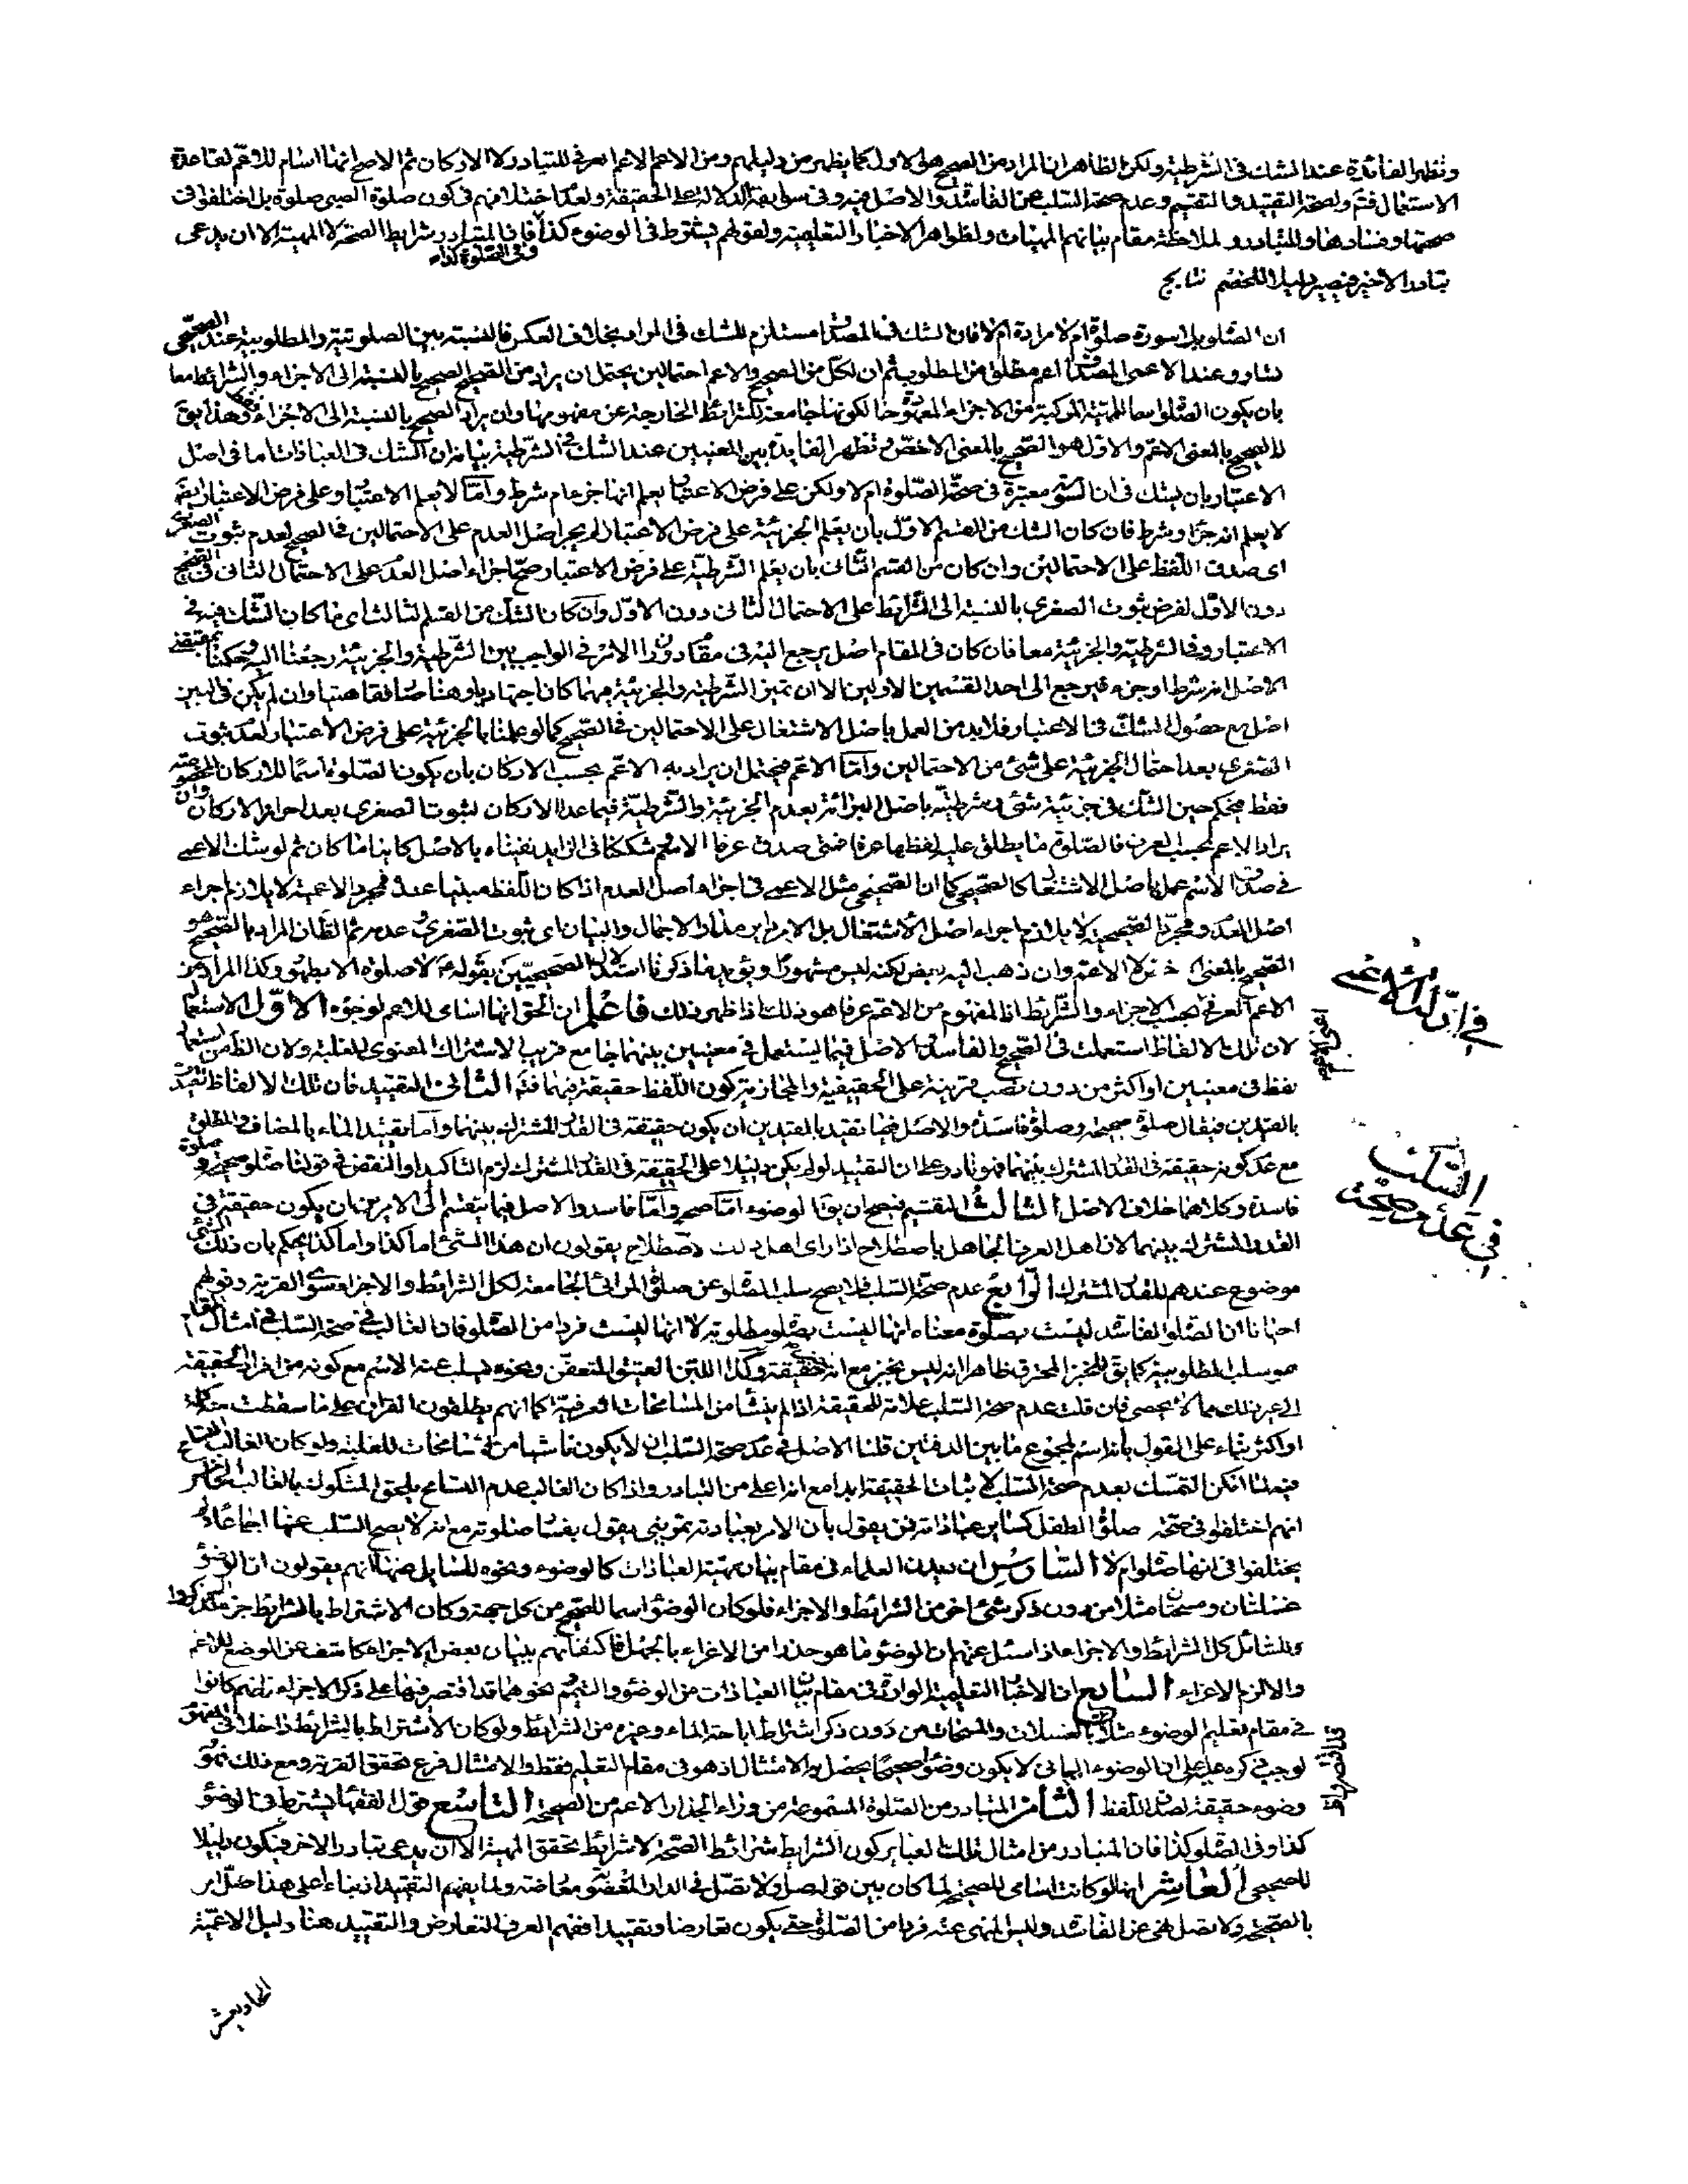 وتظهر الفائدة عند الشك فى الشرطية ولكن الظاهر ان المراد من الصحيح هو الاول كما يظهر من دليلهم ومن الاعم الاعم العرفى للتبادر لا الاركان ثم الاصح انها اسام للاعم لقاعدة
الاستعمال فتم ولصحة التقييد والتقسيم وعدم صحة السلب عن الفاسد والاصل فيه وفى سوابقه الدلالة على الحقيقة ولعدم اختلافهم فى كون صلوة الصبى صلوة بل اختلفوا فى
صحتها وفسادها وللتبادر و لملاحظة مقام بيانهم المهيات ولظواهر الاخبار التعليمية ولقولهم يشترط فى الوضوء كذا وفى الصلوة كذا فان المتبادر شرايط الصحة لا المهية الا ان يدعى
تبادر الاخير فيصير دليلا للخصم نتايج
ان الصلوة بلا سورة صلوة ام لا مرادة ام لا فان الشك فى المصداق مستلزم للشك فى المراد بخلاف العكس فالنسبة بين الصلوتية والمطلوبية عند الصحيحى
تساو وعند الاعمى المصداق اعم مطلق من المطلوب ثم ان لكل من الصحيح والاعم احتمالين يحتمل ان يراد من الصحيح الصحيح بالنسبة الى الاجزاء والشرائط معا
بان يكون الصلوة اسما للمهية المركبة من الاجزاء المعهودة حال كونها جامعة للشرائط الخارجة عن مفهومها وان يراد الصحيح بالنسبة الى الاجزاء فقط وهذا يق
له الصحيح بالمعنى الاعم والاول هو الصحيح بالمعنى الاخص وتظهر الفايدة بين المعنيين عند الشك فى الشرطية بيانه ان الشك فى العبادات اما فى اصل
الاعتبار بان يشك فى ان السورة معتبرة فى صحة الصلوة ام لا ولكن على فرض الاعتبار يعلم انها جزء ام شرط واما لا يعلم الاعتبار وعلى فرض الاعتبار ايضا
لا يعلم انه جزء او شرط فان كان الشك من القسم الاول بان يعلم الجزئية على فرض الاعتبار لم يجر اصل العدم على الاحتمالين فى الصحيح لعدم ثبوت الصغرى
اى صدق اللفظ على الاحتمالين وان كان من القسم الثانى بان يعلم الشرطية على فرض الاعتبار صح اجراء اصل العدم على الاحتمال الثانى فى الصحيح
دون الاول لفرض ثبوت الصغرى بالنسبة الى الشرائط على الاحتمال الثانى دون الاول وان كان الشك من القسم الثالث اى ما كان الشك فيه فى
الاعتبار وفى الشرطية والجزئية معا فان كان فى المقام اصل يرجع اليه فى مقام دوران الامر فى الواجب بين الشرطية والجزئية رجعنا اليه وحكمنا بمقتضى
الاصل انه شرط او جزء فيرجع الى احد القسمين الاولين الا ان تميز الشرطية والجزئية مهما كان اجتهاديا وهنا صار فقاهتيا وان لم يكن فى البين
اصل مع حصول الشك فى الاعتبار فلا بد من العمل باصل الاشتغال على الاحتمالين فى الصحيح كما لو علمنا بالجزئية على فرض الاعتبار لعدم ثبوت
الصغرى بعد احتمال الجزئية على شئ من الاحتمالين واما الاعم فيحتمل ان يراد به الاعم بحسب الاركان بان يكون الصلوة اسما للاركان المخصوصة
فقط فيحكم حين الشك فى جزئية شئ وشرطيته باصل البرائة بعدم الجزئية والشرطية فيما عدا الاركان لثبوت الصغرى بعد احراز الاركان وان
يراد الاعم بحسب العرف فالصلوة ما يطلق عليه لفظها عرفا فمتى صدق عرفا الاسم شككنا فى الزايد نفيناه بالاصل كاينا ما كان ثم لو شك الاعمى
فى صدق الاسم عمل باصل الاشتغال كالصحيحى كما ان الصحيحى مثل الاعمى فى اجراء اصل العدم اذا كان اللفظ مبينا عنده فمجرد الاعمية لا يلازم اجراء
اصل العدم ومجرد الصحيحية لا يلازم اجراء اصل الاشتغال بل الامر يدور مدار الاجمال والبيان اى ثبوت الصغرى وعدمه ثم الظان المراد بالصحيح هو
الصحيح بالمعنى الاخص لا الاعم وان ذهب اليه بعض لكنه ليس مشهورا ويؤيد ما ذكرنا استدلال الصحيحيين بقوله ع لا صلوة الا بطهور وكذا المراد من
الاعم العرفى بحسب الاجزاء والشرائط اذ المفهوم من الاعم عرفا هو ذلك اذا ظهر ذلك فاعلم ان الحق انها اسامى للاعم لوجوه الاول الاستعمال
لان تلك الالفاظ استعملت فى الصحيح والفاسد والاصل فيما يستعمل فى معنيين بينهما جامع قريب الاشتراك المعنوى للغلبة ولان الظ من استعمال
لفظ فى معنيين او اكثر من دون نصب قرينة على الحقيقية والمجازية كون اللفظ حقيقة فيهما فتم الثانى التقييد فان تلك الالفاظ تقيد
بالقيدين فيقال صلوة صحيحة وصلوة فاسدة والاصل فيما تقيد بالقيدين ان يكون حقيقة فى القدر المشترك بينهما واما تقييد الماء بالمضاف والمطلق
مع عدم كونه حقيقة فى القدر المشترك بينهما فهو نادر على ان التقييد لو لم يكن دليلا على الحقيقة فى القدر المشترك لزم التاكيد او النقض فى قولنا صلوة صحيحة وصلوة
فاسدة وكلاهما خلاف الاصل الثالث التقسيم فيصح ان يق الوضوء اما صحيح واما فاسد والاصل فيما يقسم الى الامرين ان يكون حقيقة فى
القدر المشترك بينهما لان اهل العرف الجاهل باصطلاح اذا راى اهل ذلك الاصطلاح يقولون ان هذا الشئ اما كذا واما كذا يحكم بان ذلك الشئ
موضوع عندهم للقدر المشترك الرابع عدم صحة السلب فلا يصح سلب الصلوة عن صلوة المرائى الجامعة لكل الشرائط والاجزاء سوى القربة وقولهم
احيانا ان الصلوة الفاسدة ليست بصلوة معناه انها ليست بصلوة مطلوبة لا انها ليست فردا من الصلوة فان الغالب فى صحة السلب فى امثال المقام
هو سلب المطلوبية كما يق للخبز المحترق ظاهرا انه ليس بخبز مع انه خبز حقيقة وكذا اللبن العتيق المتعفن ونحوه يسلب عنه الاسم مع كونه من افراد الحقيقة
الى غير ذلك مما لا يحصى فان قلت عدم صحة السلب علامة للحقيقة اذا لم ينشأ من المسامحات العرفية كما انهم يطلقون القران على ما سقطت منه كلمة
او اكثر بناء على القول بانه اسم لمجموع ما بين الدفتين قلنا الاصل فى عدم صحة السلب ان لا يكون ناشيا من المسامحات للغلبة ولو كان الغالب التسامح
فيه لما امكن التمسك بعدم صحة السلب لاثبات الحقيقة ابدا مع انه اعلى من التبادر واذا كان الغالب عدم التسامح يلحق المشكوك بالغالب الخامس
انهم اختلفوا فى صحة صلوة الطفل كسائر عباداته فمن يقول بان الامر بعباداته تمرينى يقول بفساد صلوته مع انه لا يصح السلب عنها اجماعا ولم
يختلفوا فى انها صلوة ام لا السادس ان ديدن العلماء فى مقام بيان مهية العبادات كالوضوء ونحوه للسايل عنها انهم يقولون ان الوضوء
غسلتان ومسحتان مثلا من دون ذكر شئ اخر من الشرائط والاجزاء فلو كان الوضوء اسما للصحيح من كل جهة وكان الاشتراط بالشرائط جزء ليذكروا
للسائل كل الشرائط والاجزاء اذا سئل عنهم ان الوضوء ما هو حذرا من الاغراء بالجهل فاكتفائهم ببيان بعض الاجزاء كاشف عن الوضع للاعم
والا لزم الاغراء السابع ان الاخبار التعليمية الواردة فى مقام بيان العبادات من الوضوء والتيمم ونحوهما قد اقتصر فيها على ذكر الاجزاء فانهم كانوا
فى مقام تعليم الوضوء مثلا بالغسلات والمسحات من دون ذكر اشتراط اباحة الماء وغيره من الشرائط ولو كان الاشتراط بالشرائط داخلا فى المفهوم
لوجب ذكره عليه على ان الوضوء البيانى لا يكون وضوء صحيحا يحصل به الامتثال اذ هو فى مقام التعليم فقط والامتثال فرع تحقق القربة ومع ذلك هو
وضوء حقيقة لصدق اللفظ الثامن المتبادر من الصلوة المسموعة من وراء الجدار الاعم من الصحيحة التاسع قول الفقهاء يشترط فى الوضوء
كذا وفى الصلوة كذا فان المتبادر من امثال تلك العباير كون الشرايط شرائط الصحة لا شرائط تحقق المهية الا ان يدعى تبادر الاخر فيكون دليلا
للصحيحى العاشر انها لو كانت اسامى للصحيحة لما كان بين قوله صل ولا تصل فى الدار المغصوبة معارضة ولما يفهم التقييد اذ بناء على هذا صل امر
بالصحيحة ولا تصل نهى عن الفاسد وليس المنهى عنه فردا من الصلوة حتى يكون تعارضا وتقييدا ففهم العرف التعارض والتقييد هنا دليل الاعمية
فى ادلة الاعمى
فى عدم صحة
السلب
الحاديعشر